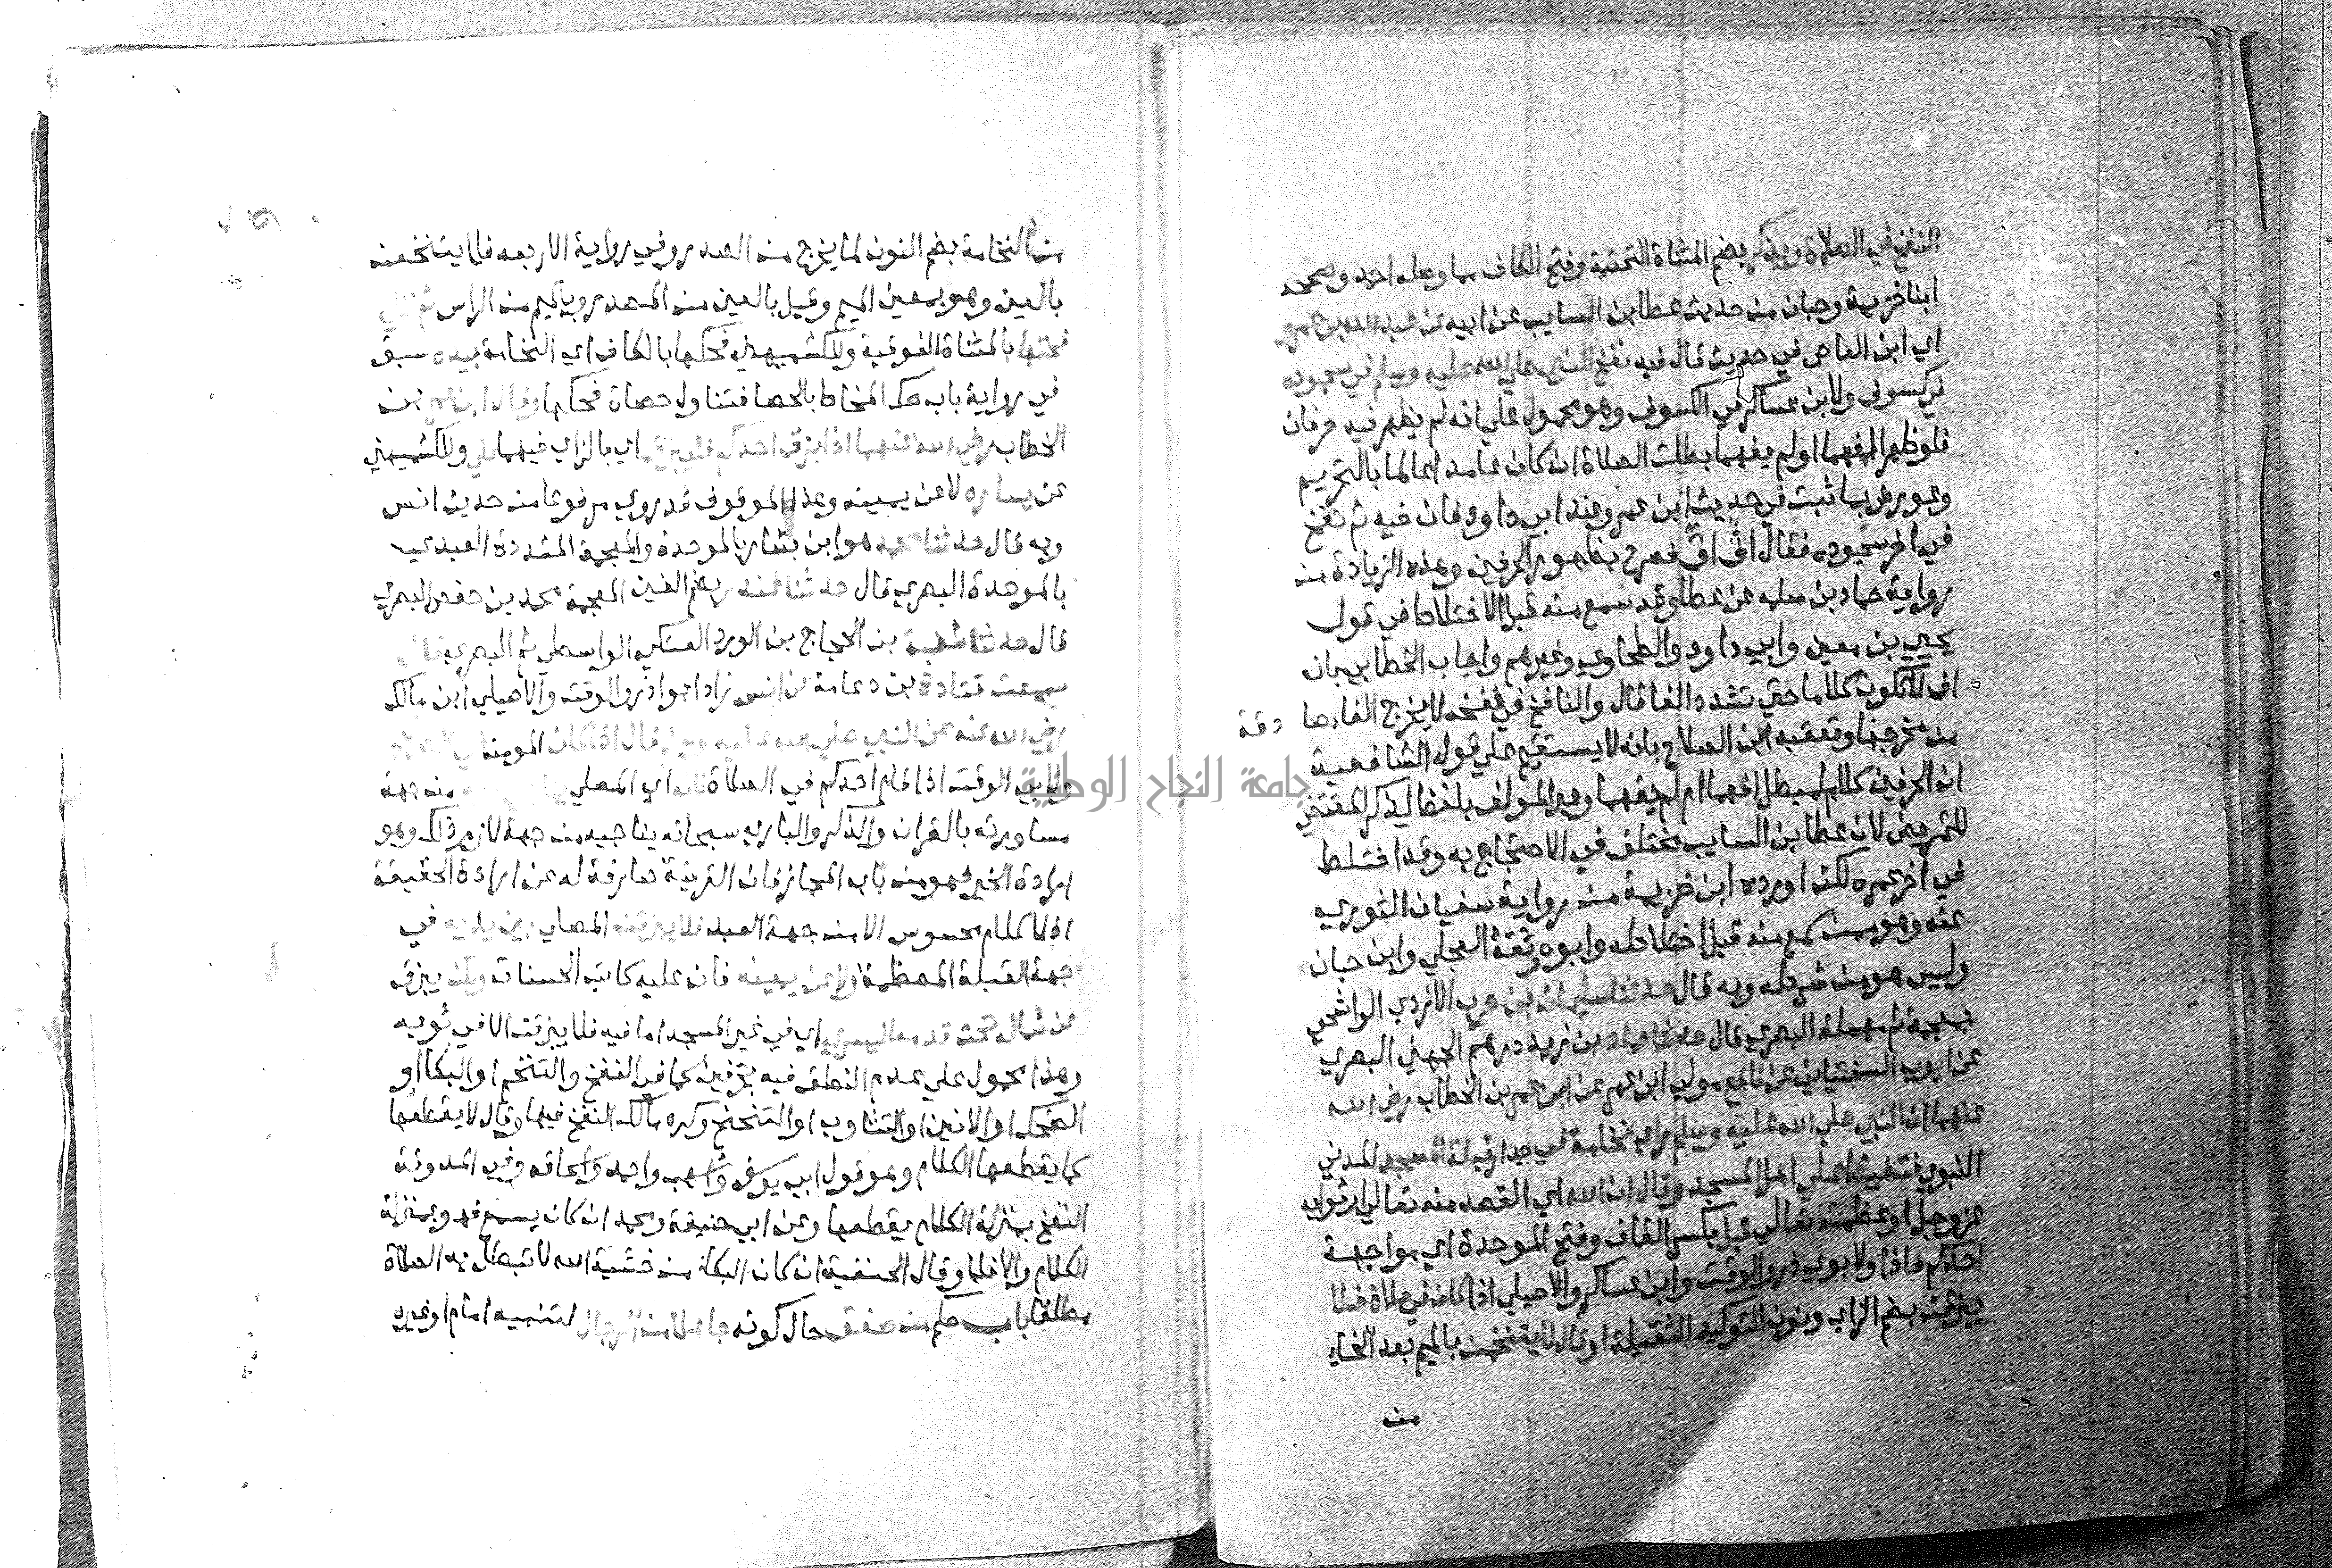 النفخ في الصلاة ويذكر بضم المثناة التحتية وفتح الكاف مما وصله احمد وصححه
ابنا خزيمة وحبان من حديث عطا بن السايب عن ابيه عن عبد الله بن عمرو
اي ابن العاص في حديث قال فيه نفخ النبي صلي الله عليه وسلم في سجوده
في كسوف ولابن عساكر في الكسوف وهو محمول علي انه لم يظهر فيه حرفان
فلو ظهرا افهما او لم يفهما بطلت الصلاة ان كان عامدا عالما بالتحريم
وعورض بما ثبت في حديث ابن عمرو عند ابي داود فان فيه ثم نفخ
في اخر سجوده فقال اف اف فصرح بظهور الحرفين وهذه الزيادة من
رواية حماد بن سلمه عن عطا وقد سمع منه قبل الاختلاط في قول
يحيي بن معين وابي داود والطحاوي وغيرهم واجاب الخطابي بان
اف لا تكون كلاما حتي تشدد الفا قال والنافخ في نفخه لا يخرج الفا صا دقة
من مخرجها وتعقبه ابن الصلاح بانه لا يستقيم علي قول الشافعية
ان الحرفين كلام مبطل افهما ام لم يفهما وعبر المولف بلفظ يذكر المقتضي
للتمريض لان عطا بن السايب مختلف في الاحتجاج به وقد اختلط
في اخر عمره لكنه اورده ابن خزيمة من رواية سفيان الثوري
عنه وهو ممن سمع منه قبل اختلاطه وابوه وثقه العجلي وابن حبان
وليس هو من شرطه وبه قال حدثنا سليمان بن حرب الازدي الواشحي
بمعجمة ثم مهملة البصري قال حدثنا حماد بن زيد درهم الجهضي البصري
عن ايوب السختياني عن نافع مولي ابن عمر عن ابن عمر بن الخطاب رضي الله
عنهما ان النبي صلي الله عليه وسلم راي نخامة في جدار قبلة المسجد المدني
النبوي فتغيظ علي اهل المسجد وقال ان الله اي القصد منه تعالي او ثوابه
عز وجل او عظمته تعالي قبل بكسر القاف وفتح الموحدة اي مواجهة
احدكم فاذا ولابوي ذر والوقت وابن عساكر والاصيلي اذا كان في صلاة فلا
يبزقن بضم الزاي ونون التوكيد الثقيلة او قال لا يتنخمن بالميم بعد الخاء
من
من النخامة بضم النون لما يخرج من الصدر وفي رواية الاربعه فلا يتنخعنه
بالعين وهو بمعني الميم وقيل بالعين من الصدر وبالميم من الراس ثم نزل
فحتها بالمثناة الفوقية وللكشميهني فحكها بالكاف اي النخامة بيده سبق
في رواية باب حك المخاط بالحصا فتناول حصاة فحكها وقال ابن عمر بن
الخطاب رضي الله عنهما اذا بزق احدكم فليبزق اي بالزاي فيهما علي وللكشميهني
عن يساره لا عن يمينه وهذا الموقوف قد روي مرفوعا من حديث انس
وبه قال حدثنا محمد هو ابن بشار بالموحدة والمعجمة المشددة العبدي
بالموحدة البصري قال حدثنا غندر بضم الغين المعجمة محمد بن جعفر البصري
قال حدثنا شعبة بن الحجاج بن الورد العتكي الواسطي ثم البصري قال
سمعت قتادة بن دعامة عن انس زاد ابوا ذر والوقت والاصيلي ابن مالك
رضي الله عنه عن النبي صلي الله عليه وسلم قال اذا كان المومن في الصلاة
ولابي الوقت اذا قام احدكم في الصلاة فانه اي المصلي من جهة
مساورته بالقران والذكر والباري سبحانه يناجيه من جهة لازم ذلك وهو
ارادة الخير فهو من باب المجاز فان القرينة صارفة له عن ارادة الحقيقة
اذ لا كلام محسوس الا من جهة العبد فلا يبزقن المصلي بين يديه في
جهة القبلة المعظمة ولا عن يمينه فان عليه كاتب الحسنات ولكن يبزق
عن شماله تحت قدمه اليسري اي في غير المسجد اما فيه فلا يبزقن الا في ثوبه
وهذا محمول علي عدم النطق فيه بحرفين كما في النفخ والتنخم او البكا او
الضحك او الانين او التثاوب او التنحنح وكره مالك النفخ فيها وقال لا يقطعها
كما يقطعها الكلام وهو قول ابي يوسف واشهب واحمد واسحاق وفي المدونة
النفخ بمنزلة الكلام يقطعها وعن ابي حنيفة ومحمد ان كان يسمع فهو بمنزلة
الكلام والا فلا وقال الحنفية ان كان البكا من خشية الله لا تبطل به الصلاة
مطلقا باب حكم من صفق حال كونه جاهلا من الرجال لتنبيه امام او غيره